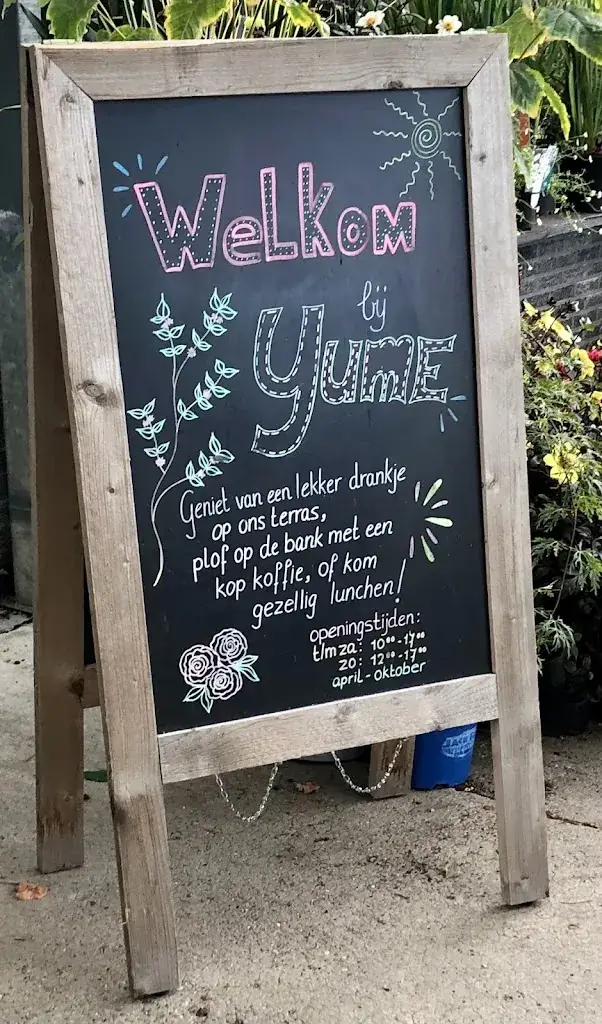 WeLKoM
bij
YUME
Geniet van een lekker drankje
op ons terras,
plof op de bank met een
kop koffie, of kom
gezellig lunchen!
openingstijden:
t/m za: 10⁰⁰-17⁰⁰
zo: 12⁰⁰-17⁰⁰
april - oktober